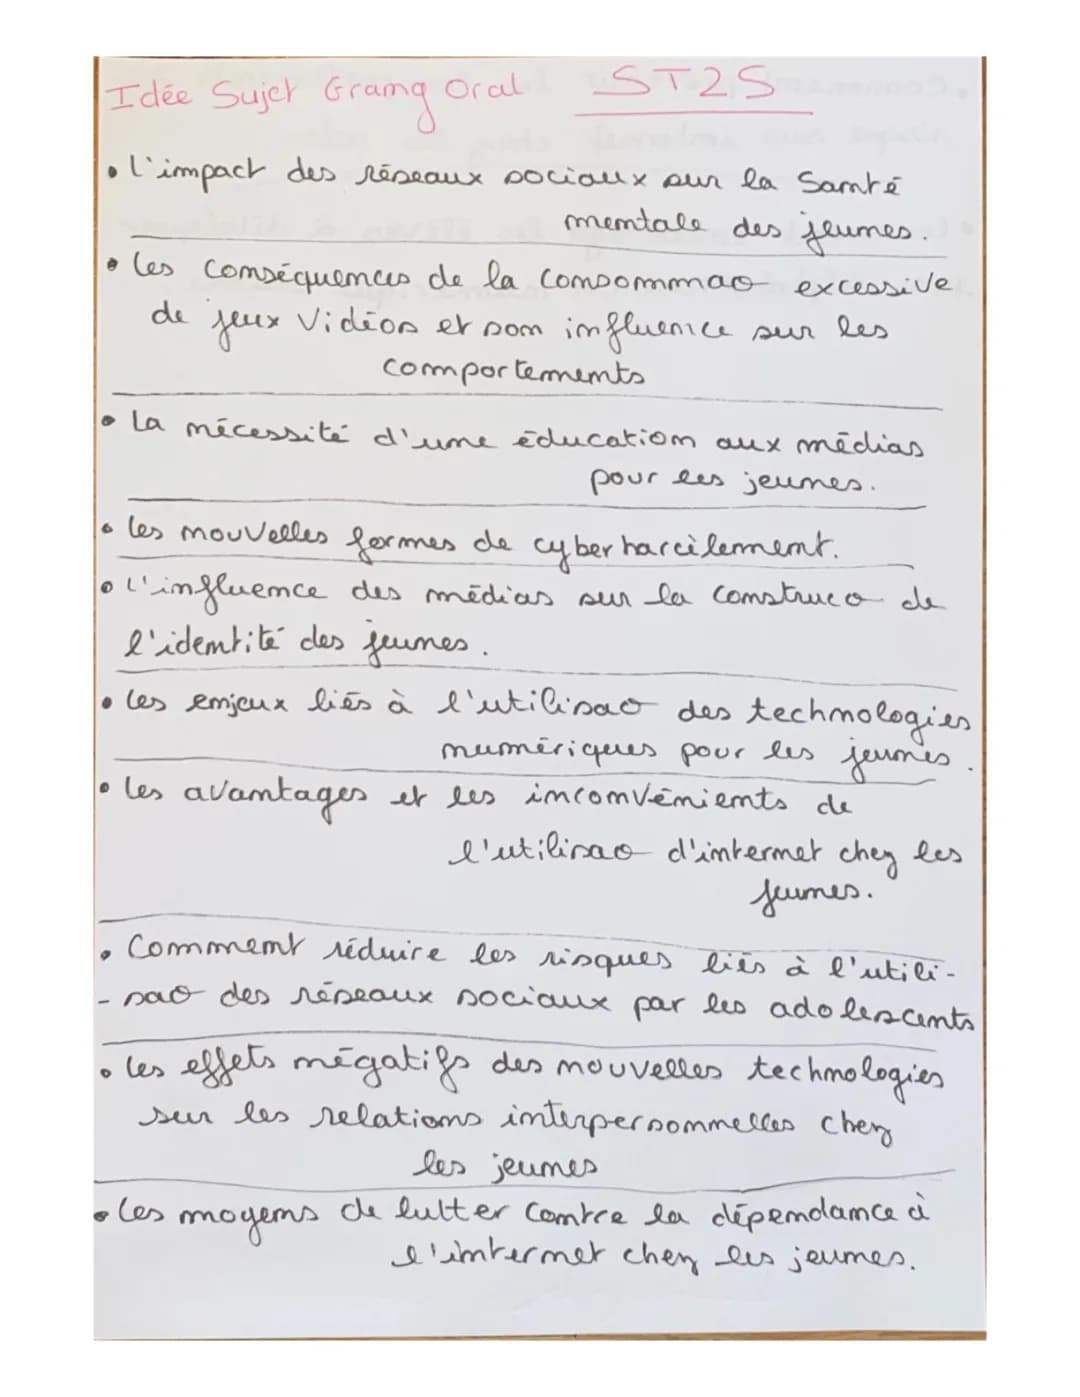 Idée Sujet Grang Oral ST2S
• L'impact des réseaux sociaux sur la Santé
mentale des jeunes.
• Les Conséquences de la Consommao excessive
de jeux Vidéos et son influence sur les
comportements
• La nécessité d'une éducation aux médias
pour les jeunes.
• Les nouvelles formes de cyberharcèlement.
• L'influence des médias sur la construco de
l'identité des jeunes.
• Les enjeux liés à l'utilisao des technologies
numériques pour les jeunes.
• Les avantages et les inconvénients de
l'utilisao d'internet chez les
jeunes.
• Comment réduire les risques liés à l'utili-
- sao des réseaux sociaux par les adolescents
• Les effets négatifs des nouvelles technologies
sur les relations interpersonnelles chez
les jeunes
• Les moyens de lutter contre la dépendance à
l'internet chez les jeunes.